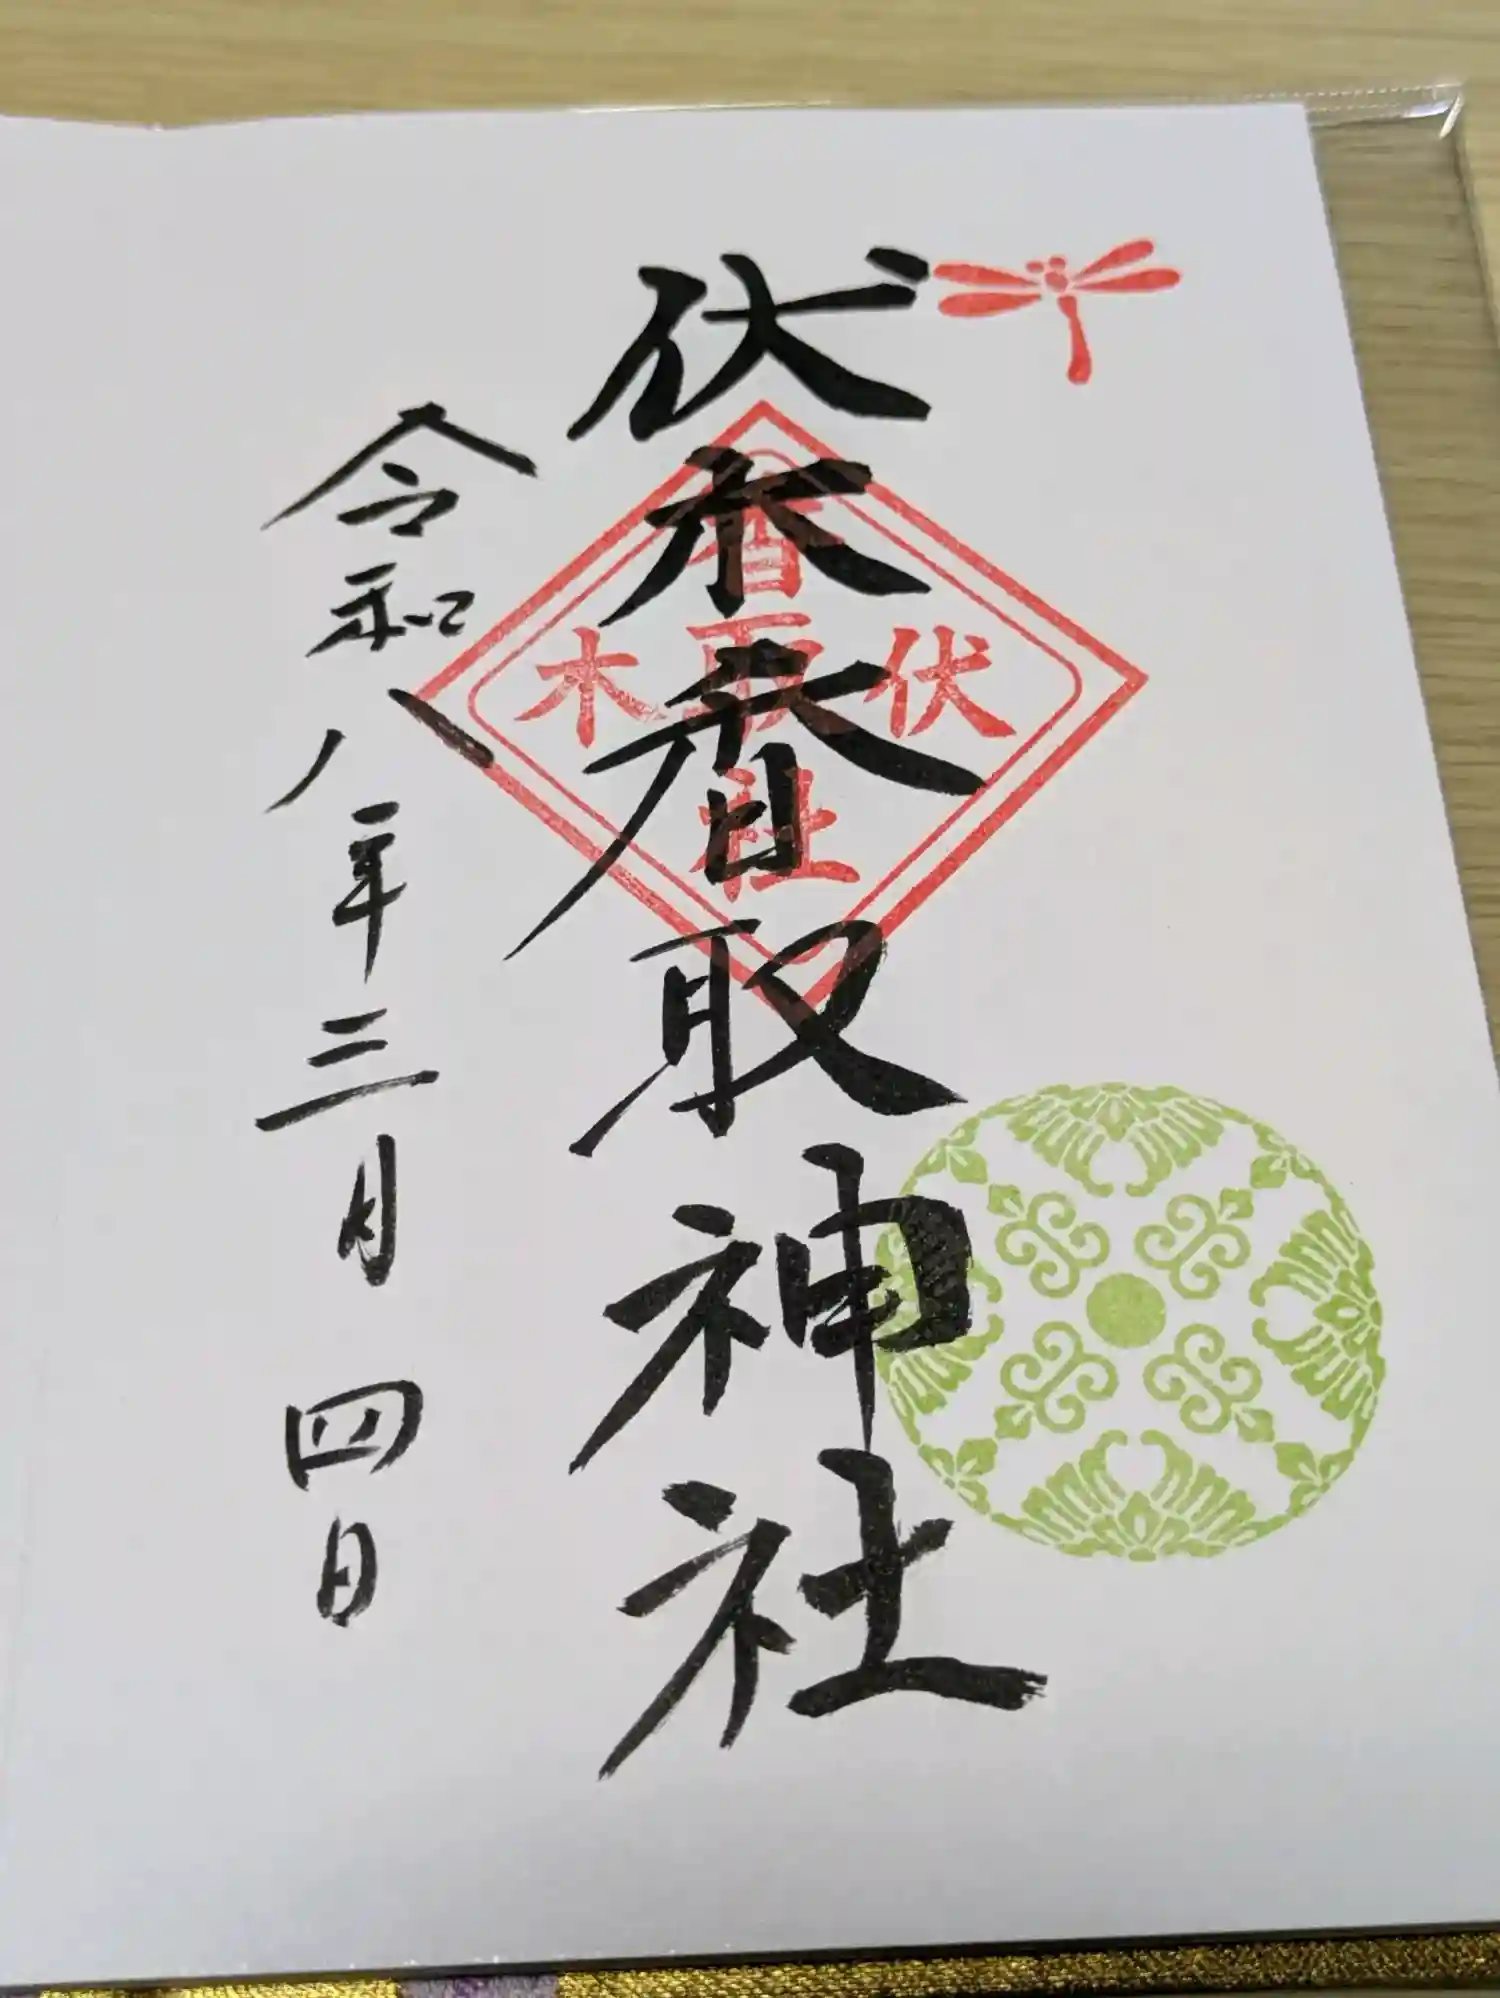 伏木香取神社
伏木
香取社
令和八年三月四日